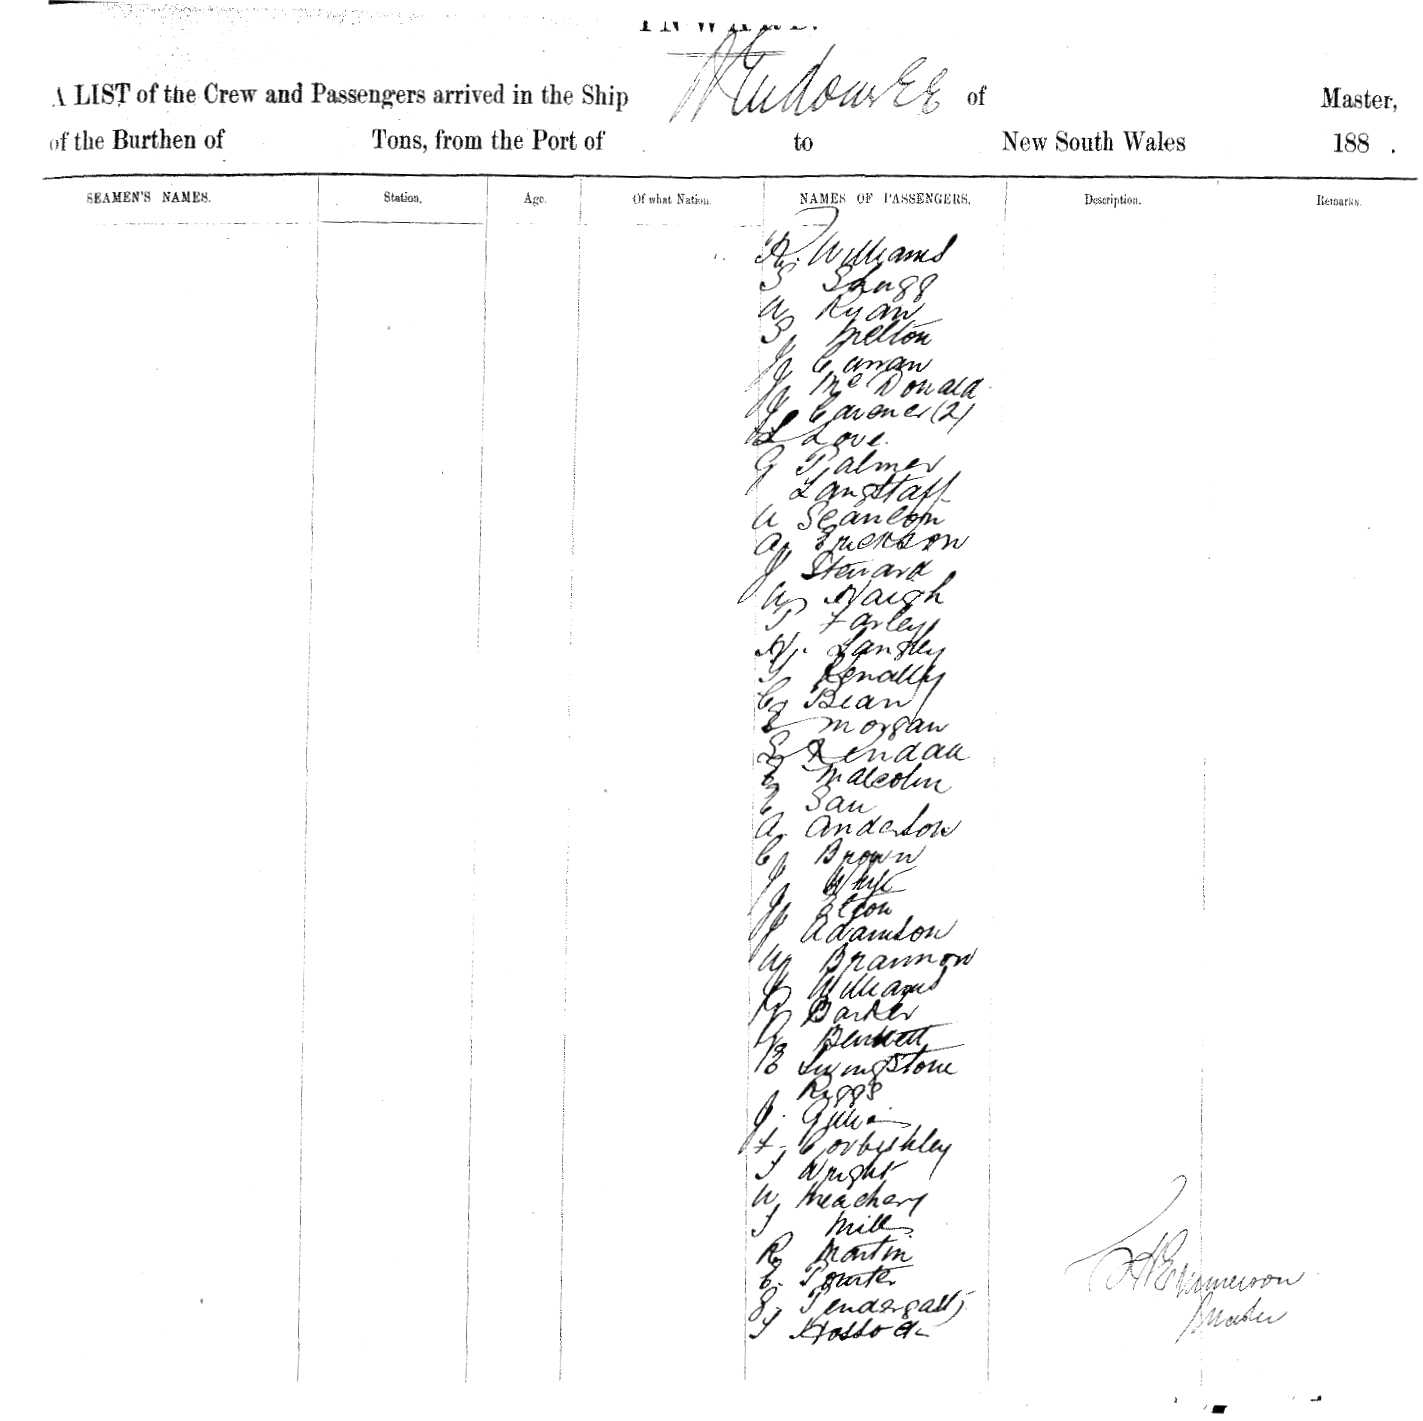 INWARD.
A LIST of the Crew and Passengers arrived in the Ship of Master,
of the Burthen of Tons, from the Port of to New South Wales 188 .
SEAMEN'S NAMES. Station. Age. Of what Nation. NAMES OF PASSENGERS. Description. Remarks.
R. Williams
S Shugg
W Ryan
S Melton
J Curran
J McDonald
J (2)
Love.
G Palmer
Langstaff
W Scanlon
A Erickson
J Steward
W Waugh
T Farley
W. Langley
T Kenally
C Bean
E Morgan
Kendall
E Malcolm
E Sau
A. Anderson
C Brown
J Whyte
J Elton
J Adamson
W Brannon
Williams
R Barker
Bennett
E Livingstone
J Riggs
J.
F.
T Wright
W Meachery
T Mills
R Martin
E. Pointer
J. Pendergast
T Hossack
Master